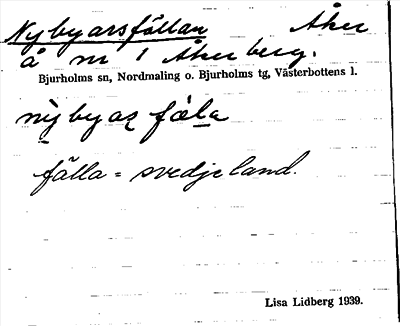 Nybyarsfällan Åker
å nr 1 Åkerberg.
Bjurholms sn, Nordmaling o. Bjurholms tg, Västerbottens l.
nỳbyaz fäla
fälla = svedjeland.
Lisa Lidberg 1939.